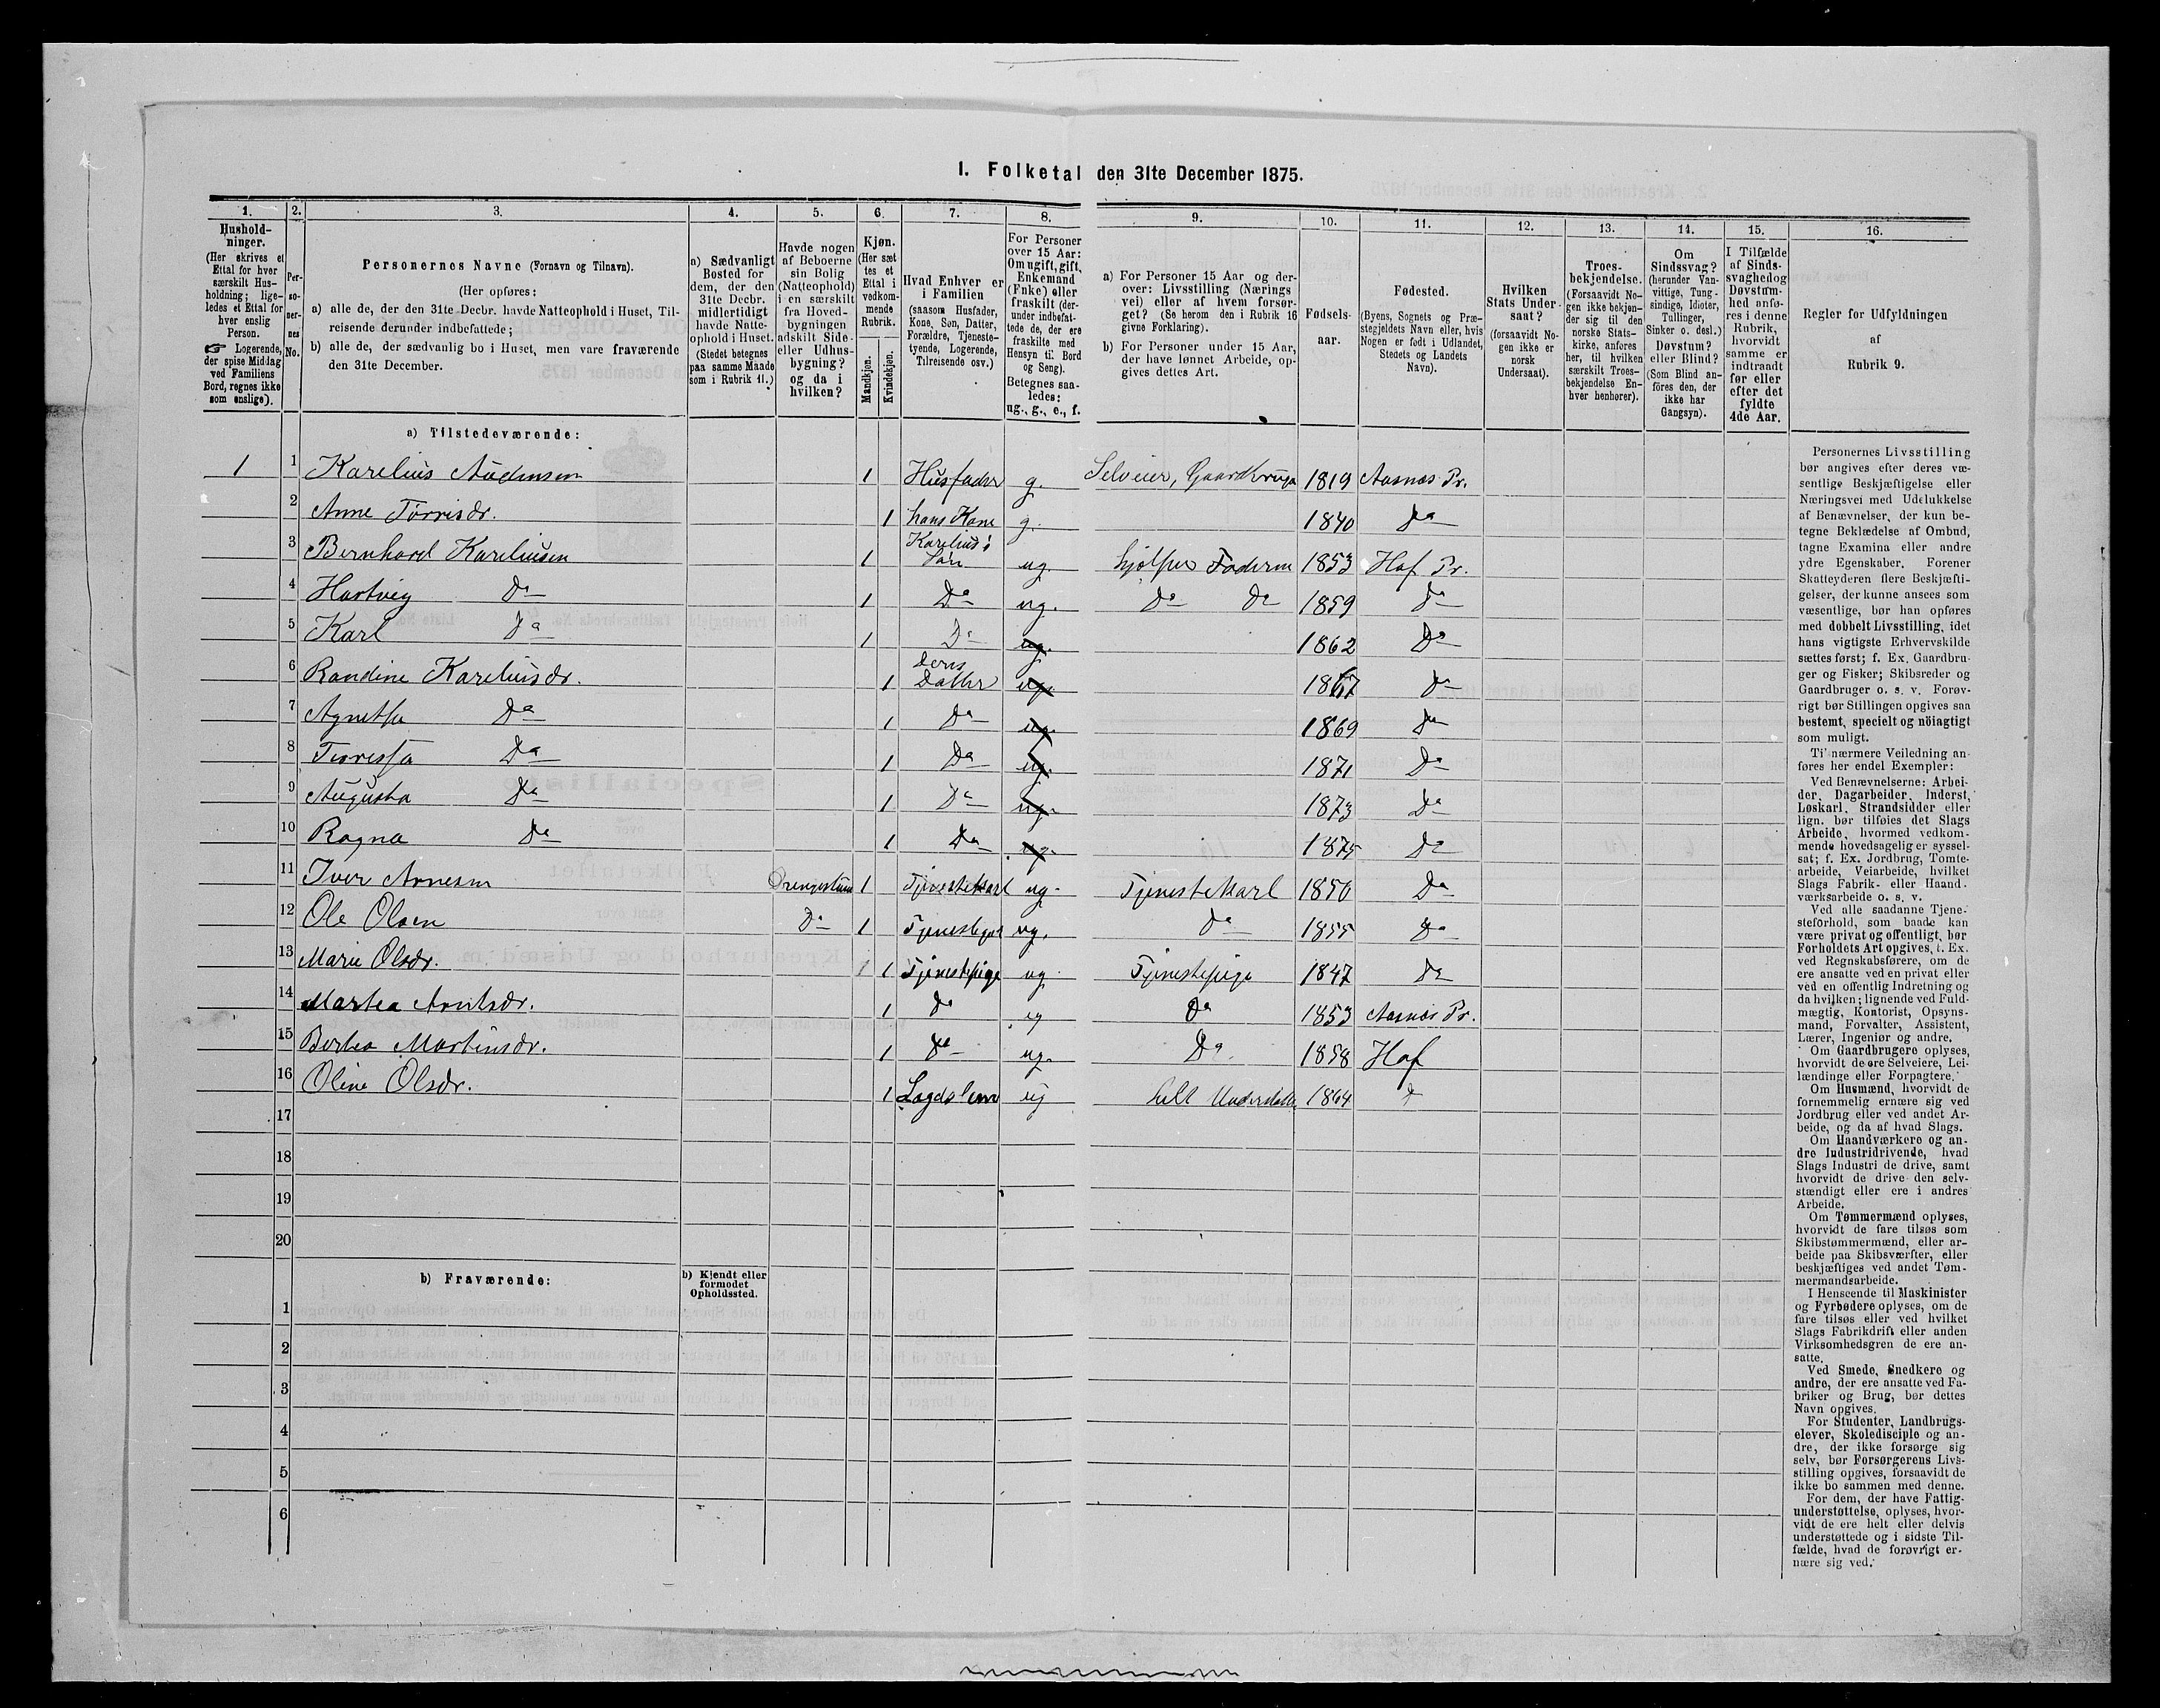 I. Folketal den 31te December 1875.
1. 2. 3. 4. 5. 6. 7. 8. 9. 10. 11. 12. 13. 14. 15. 16.
Hushold-
ninger.
(Her skrives et
Ettal for hver
særskilt Hus-
holdning; lige-
ledes et Ettal for
hver enslig
Person.
☞ Logerende,
der spise Middag
ved Familiens
Bord, regnes ikke
som enslige).
Per-
so-
ner-
nes
No.
Personernes Navne (Fornavn og Tilnavn).
(Her opføres:
a) alle de, der den 31te Decbr. havde Natteophold i Huset, Til-
reisende derunder indbefattede;
b) alle de, der sædvanlig bo i Huset, men vare fraværende
den 31te December.
a) Sædvanligt
Bosted for
dem, der den
31te Decbr.
midlertidigt
havde Natte-
ophold i Huset.
(Stedet betegnes
paa samme Maade
som i Rubrik 11.)
Havde nogen
af Beboerne
sin Bolig
(Natteophold)
i en særskilt
fra Hoved-
bygningen
adskilt Side-
eller Udhus-
bygning?
og da i
hvilken?
Kjøn.
(Her sæt-
tes et
Ettal i
vedkom-
mende
Rubrik.
Mandkjøn.
Kvindekjøn.
Hvad Enhver er
i Familien
(saasom Husfader,
Kone, Søn, Datter,
Forældre, Tjeneste-
tyende, Logerende,
Tilreisende osv.)
For Personer
over 15 Aar:
Om ugift, gift,
Enkemand
(Enke) eller
fraskilt (der-
under indbefat-
tede de, der ere
fraskilte med
Hensyn til Bord
og Seng).
Betegnes saa-
ledes:
ug., g., e., f.
a) For Personer 15 Aar og der-
over: Livsstilling (Nærings
vei) eller af hvem forsør-
get? (Se herom den i Rubrik 16
givne Forklaring).
b) For Personer under 15 Aar,
der have lønnet Arbeide, op-
gives dettes Art.
Fødsels-
aar.
Fødested.
(Byens, Sognets og Præ-
stegjeldets Navn eller, hvis
Nogen er født i Udlandet,
Stedets og Landets
Navn).
Hvilken
Stats Under-
saat?
(forsaavidt No-
gen ikke er
norsk
Undersaat).
Troes-
bekjendelse.
(Forsaavidt No-
gen ikke bekjen-
der sig til den
norske Stats-
kirke, anføres
her, til hvilken
særskilt Troes-
bekjendelse En-
hver henhører).
Om
Sindssvag?
(herunder Van-
vittige, Tung-
sindige, Idioter,
Tullinger,
Sinker o. desl.)
Døvstum?
eller Blind?
(Som Blind an-
föres den, der
ikke har
Gangsyn).
I Tilfælde
af Sinds-
svaghed og
Døvstum-
hed anfø-
res i denne
Rubrik,
hvorvidt
samme er
indtraadt
før eller
efter det
fyldte
4de Aar.
Regler for Udfyldningen
af
Rubrik 9.
a) Tilstedeværende:
1 1 Karelius Audensen 1 Husfader g. Selveier, Gaardbruger 1819 Aasnæs Pr.
2 Anne Torrisdr. 1 hans Kone g. 1840 Do
3 Bernhard Kareliusen 1 Karelius's Søn ug. hjælper Faderen 1853 Hof Pr.
4 Hartvig Do 1 Do ug. Do Do 1859 Do
5 Karl Do 1 Do ug. 1862 Do
6 Randine Kareliusdr. 1 deres Datter ug. 1867 Do
7 Agnethe Do 1 Do ug. 1869 Do
8 Do 1 Do ug. 1871 Do
9 Augusta Do 1 Do ug. 1873 Do
10 Ragna Do 1 Do ug. 1875 Do
11 Iver Arnesen Drengestuen 1 Tjenestekarl ug. Tjenestekarl 1850 Do
12 Ole Olsen Do 1 ug. Do 1855 Do
13 Marie Olsdr. 1 Tjenestepige ug. Tjenestepige 1847 Do
14 Marthea 1 Do ug Do 1853 Aasnæs Pr.
15 Berthea Martinsdr. 1 Do ug. Do 1858 Hof
16 Oline Olsdr. 1 Lægdslem ug helt 1864 D
17
18
19
20
b) Fraværende:
b) Kjendt eller
formodet
Opholdssted.
1
2
3
4
5
6
Personernes Livsstilling
bør angives efter deres væ-
sentlige Beskjæftigelse eller
Næringsvei med Udelukkelse
af Benævnelser, der kun be-
tegne Beklædelse af Ombud,
tagne Examina eller andre
ydre Egenskaber. Forener
Skatteyderen flere Beskjæfti-
gelser, der kunne ansees som
væsentlige, bør han opføres
med dobbelt Livsstilling, idet
hans vigtigste Erhvervskilde
sættes først; f. Ex. Gaardbru-
ger og Fisker; Skibsreder og
Gaardbruger o. s. v. Forøv-
rigt bør Stillingen opgives saa
bestemt, specielt og nöiagtigt
som muligt.
Til nærmere Veiledning an-
føres her endel Exempler:
Ved Benævnelserne: Arbei-
der, Dagarbeider, Inderst,
Løskarl, Strandsidder eller
lign. bør tilføies det Slags
Arbeide, hvormed vedkom-
mende hovedsagelig er syssel-
sat; f. Ex. Jordbrug, Tomte-
arbeide, Veiarbeide, hvilket
Slags Fabrik- eller Haand-
værksarbeide o. s. v.
Ved alle saadanne Tjene-
steforhold, som baade kan
være privat og offentligt, bør
Forholdets Art opgives, f. Ex.
ved Regnskabsførere, om de
ere ansatte ved en privat eller
ved en offentlig Indretning og
da hvilken; lignende ved Fuld-
mægtig, Kontorist, Opsyns-
mand, Forvalter, Assistent,
Lærer, Ingeniør og andre.
Om Gaardbrugere oplyses,
hvorvidt de ere Selveiere, Lei-
lændinge eller Forpagtere.
Om Husmænd, hvorvidt de
fornemmelig ernære sig ved
Jordbrug eller ved andet Ar-
beide, og da af hvad Slags.
Om Haandværkere og an-
dre Industridrivende, hvad
Slags Industri de drive, samt
hvorvidt de drive den selv-
stændigt eller ere i andres
Arbeide.
Om Tømmermænd oplyses,
hvorvidt de fare tilsøs som
Skibstømmermænd, eller ar-
beide paa Skibsværfter, eller
beskjæftiges ved andet Tøm-
mermandsarbeide.
I Henseende til Maskinister
og Fyrbødere oplyses, om de
fare tilsøs eller ved hvilket
Slags Fabrikdrift eller anden
Virksomhedsgren de ere an-
satte.
Ved Smede, Snedkere og
andre, der ere ansatte ved Fa-
briker og Brug, bør dettes
Navn opgives.
For Studenter, Landbrugs-
elever, Skoledisciple og an-
dre, der ikke forsørge sig
selv, bør Forsørgerens Livs-
stilling opgives, forsaavidt de
ikke bo sammen med denne.
For dem, der have Fattig-
understøttelse, oplyses, hvor-
vidt de ere helt eller delvis
understøttede og i sidste Til-
fælde, hvad de forøvrigt er-
nære sig ved.